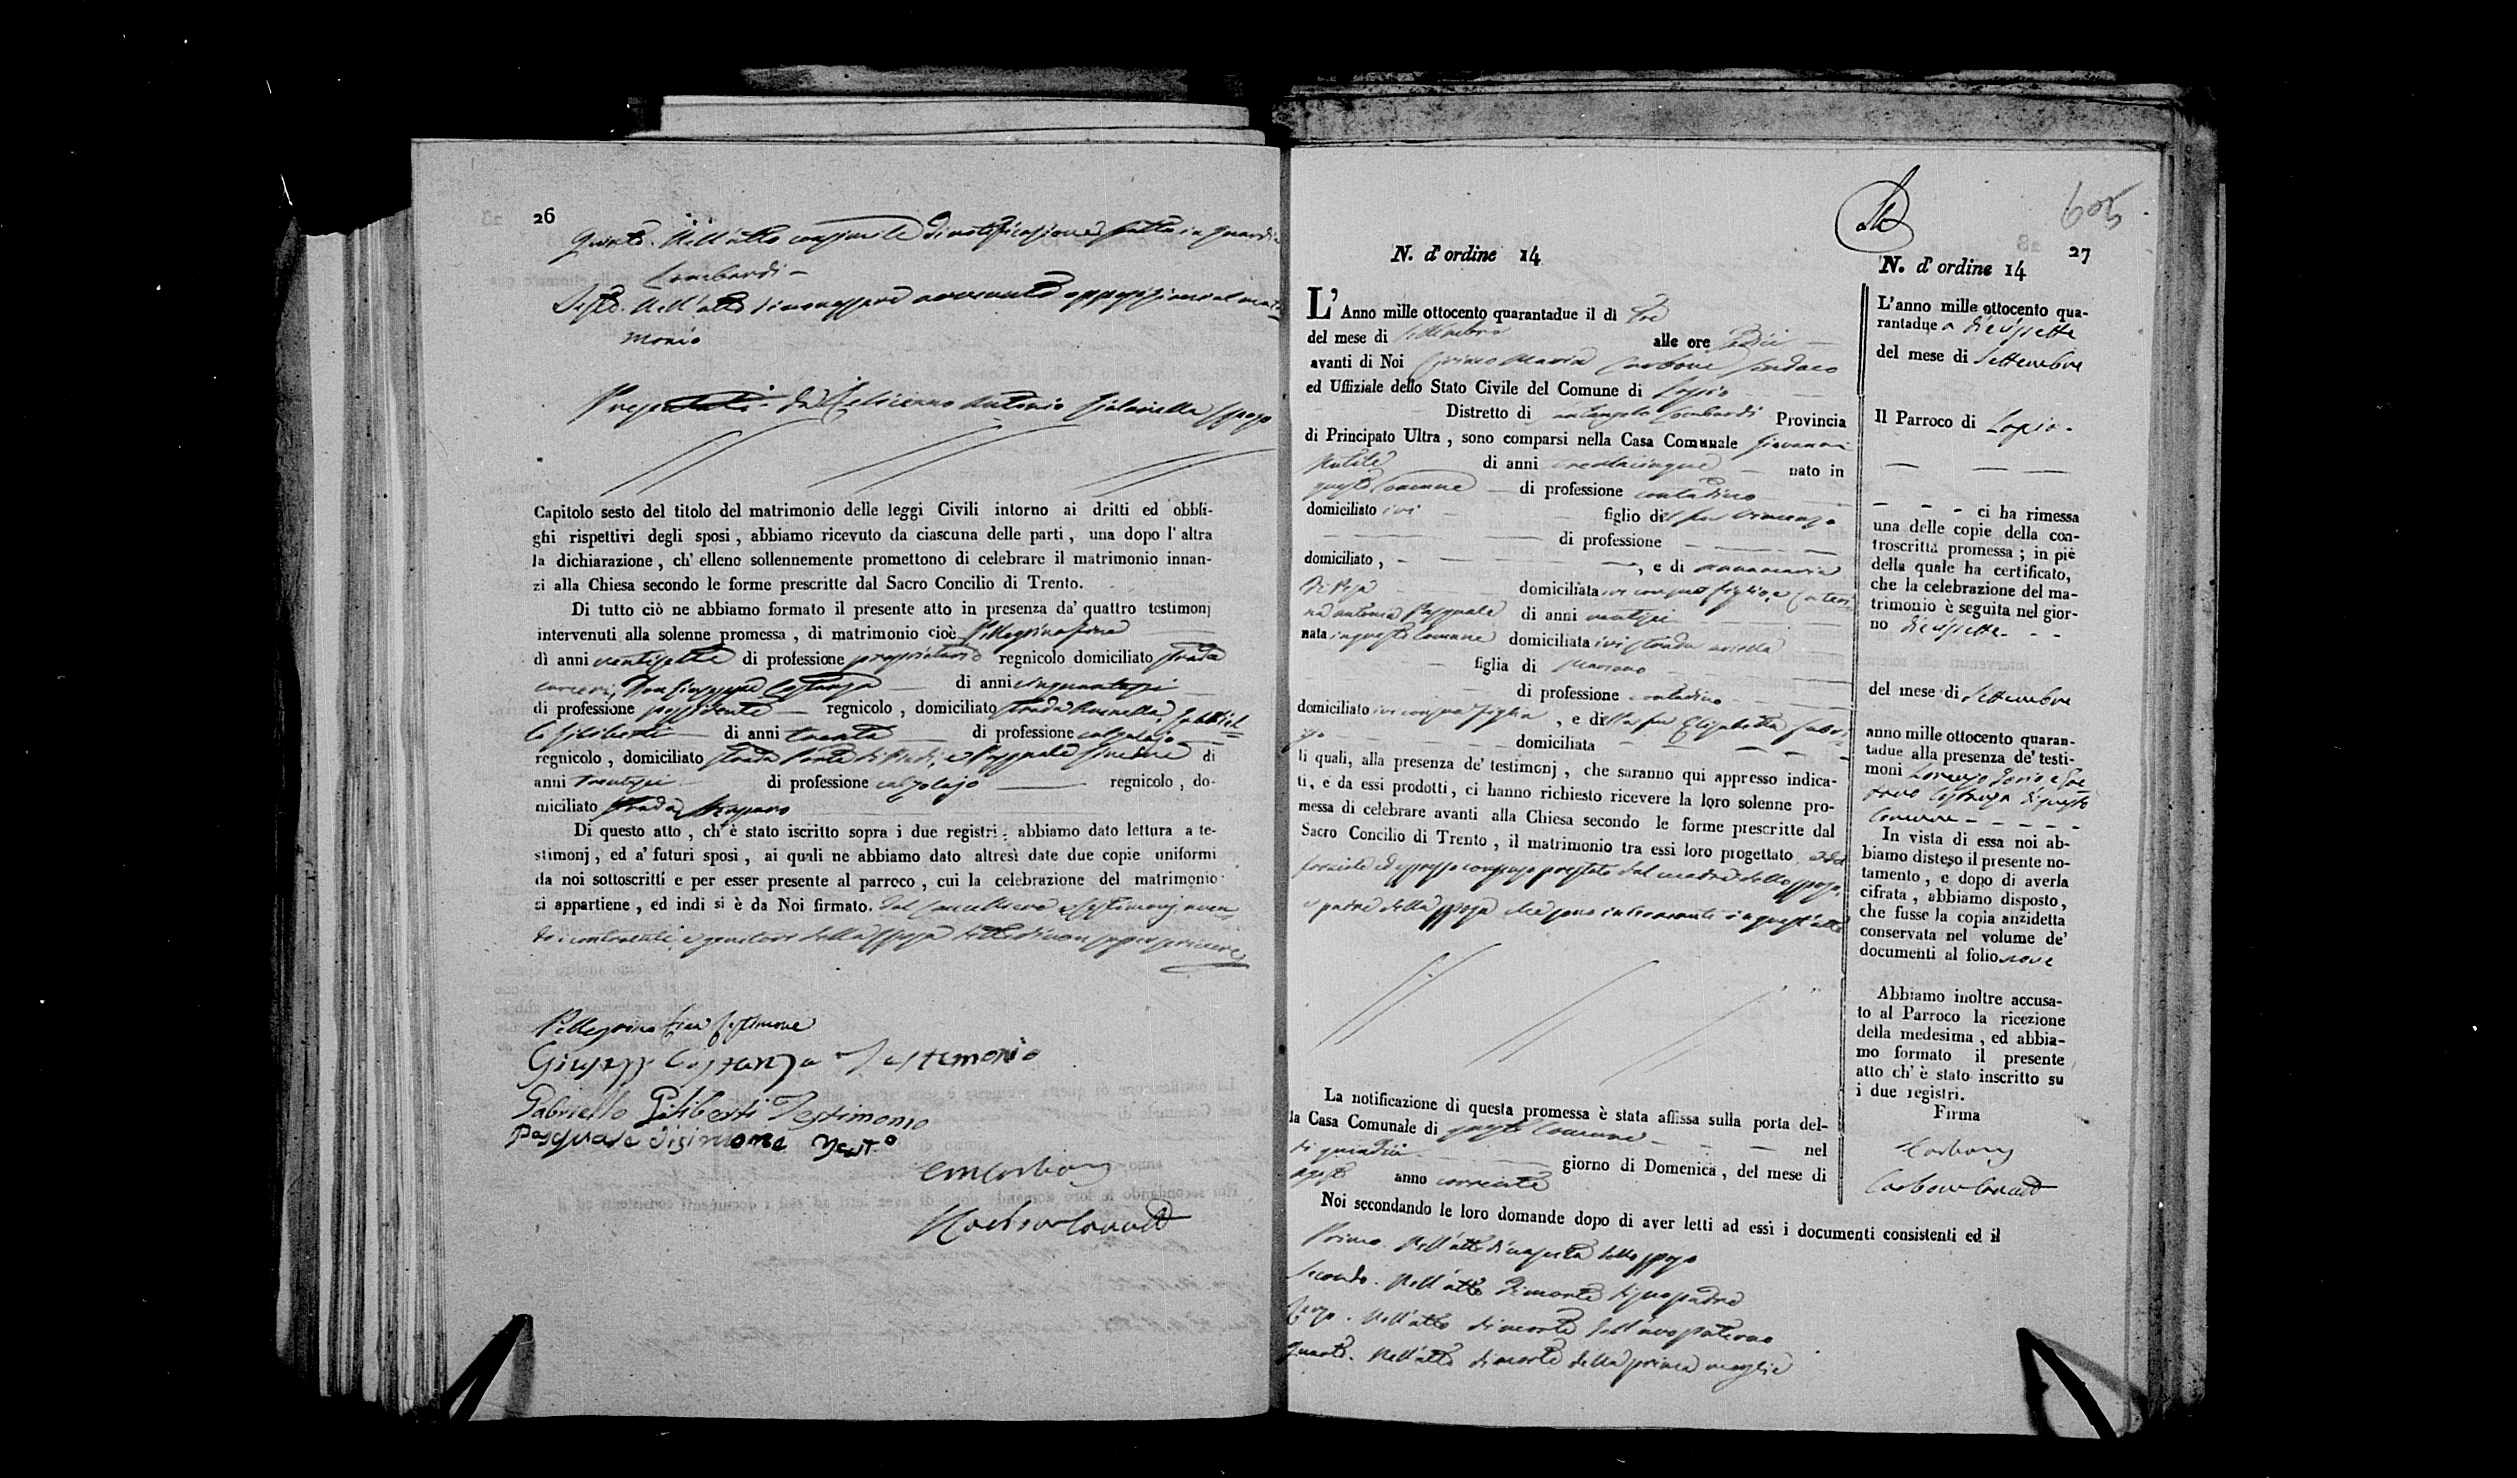 26
Quinto. Nell'atto consimile di notificazione fatta in Guardia
Lombardi -
Sesto. Nell'atto di non essere avvenuta opposizione al matri=
monio
Presentati da Antonio sposo
Capitolo sesto del titolo del matrimonio delle leggi Civili intorno ai dritti ed obbli-
ghi rispettivi degli sposi, abbiamo ricevuto da ciascuna delle parti, una dopo l'altra
la dichiarazione, ch'elleno sollennemente promettono di celebrare il matrimonio innan-
zi alla Chiesa secondo le forme prescritte dal Sacro Concilio di Trento.
Di tutto ciò ne abbiamo formato il presente atto in presenza da' quattro testimonj
intervenuti alla solenne promessa, di matrimonio cioè Pellegrino
di anni ventisette di professione proprietario regnicolo domiciliato strada
Don Giuseppe Costanza di anni cinquantasei
di professione possidente regnicolo, domiciliato strada Gabriel=
lo Giliberti di anni trenta di professione calzolajo
regnicolo, domiciliato strada e Pasquale di
anni trentasei di professione calzolajo regnicolo, do-
miciliato strada
Di questo atto, ch'è stato iscritto sopra i due registri: abbiamo dato lettura a te-
stimonj, ed a' futuri sposi, ai quali ne abbiamo dato altresì date due copie uniformi
da noi sottoscritti e per esser presente al parroco, cui la celebrazione del matrimonio
si appartiene, ed indi si è da Noi firmato. dal Cancelliere e testimonj aven
do i contraenti, e genitore della sposa detto di non saper scrivere
Pellegrino testimone
Giuseppe Costanza Testimonio
Gabriello Giliberti Testimonio
Pasquale disimone Testo
CMCarbone
605
27
N. d'ordine 14
L'Anno mille ottocento quarantadue il dì tre
del mese di Settembre alle ore sedici
avanti di Noi Ciriaco Maria Carbone Sindaco
ed Uffiziale dello Stato Civile del Comune di Lapio
Distretto di Santangelo Lombardi Provincia
di Principato Ultra, sono comparsi nella Casa Comunale Giovanni
di anni trentacinque nato in
questo Comune di professione contadino
domiciliato ivi figlio del fu Vincenzo
di professione
domiciliato, , e di Annamaria
domiciliata ivi con suo figlio, e Cateri
na Antonia Pasquale di anni ventisei
nata in questo Comune domiciliata ivi strada
figlia di Mariano
di professione contadino
domiciliato ivi con sua figlia, e della fu Elisabetta
domiciliata
li quali, alla presenza de' testimonj, che saranno qui appresso indica-
ti, e da essi prodotti, ci hanno richiesto ricevere la loro solenne pro-
messa di celebrare avanti alla Chiesa secondo le forme prescritte dal
Sacro Concilio di Trento, il matrimonio tra essi loro progettato
formale ed espresso consenso prestato dal madre dello sposo,
e padre della sposa che sono intervenuti in quest'atto
La notificazione di questa promessa è stata affissa sulla porta del-
la Casa Comunale di questo Comune nel
di giorno di Domenica, del mese di
Agosto anno corrente
Noi secondando le loro domande dopo di aver letti ad essi i documenti consistenti ed il
Primo. Nell'atto di nascita dello sposo
Secondo. Nell'atto di morte di suo padre
Terzo. Nell'atto di morte dell'avo paterno
Quarto. Nell'atto di morte della prima moglie
N. d'ordine 14
L'anno mille ottocento qua-
rantadue a diecissette
del mese di Settembre
Il Parroco di Lapio.
ci ha rimessa
una delle copie della con-
troscritta promessa; in piè
della quale ha certificato,
che la celebrazione del ma-
trimonio è seguita nel gior-
no diecissette
del mese di Settembre
anno mille ottocento quaran-
tadue alla presenza de' testi-
moni Lorenzo e
Costanza di questo
Comune
In vista di essa noi ab-
biamo disteso il presente no-
tamento, e dopo di averla
cifrata, abbiamo disposto,
che fusse la copia anzidetta
conservata nel volume de'
documenti al folio nove
Abbiamo inoltre accusa-
to al Parroco la ricezione
della medesima, ed abbia-
mo formato il presente
atto ch'è stato inscritto su
i due registri.
Firma
Carbone